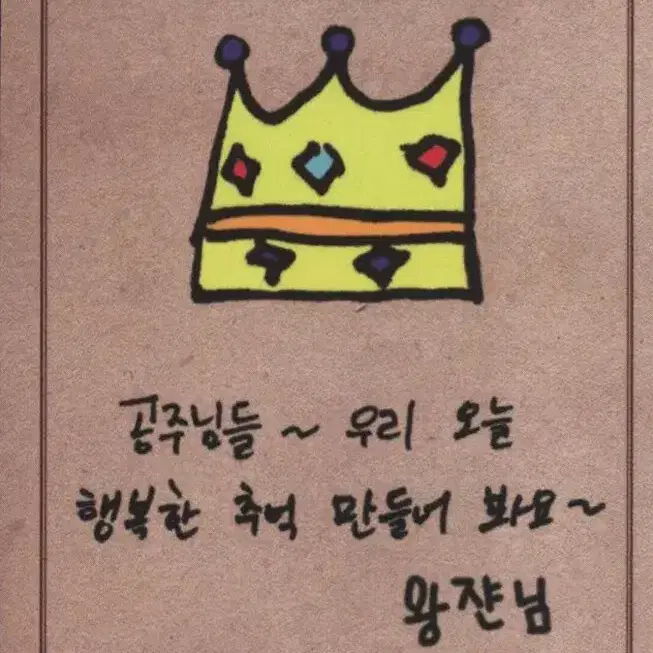 공주님들 ~ 우리 오늘
행복한 추억 만들어 봐요~
왕쟌님